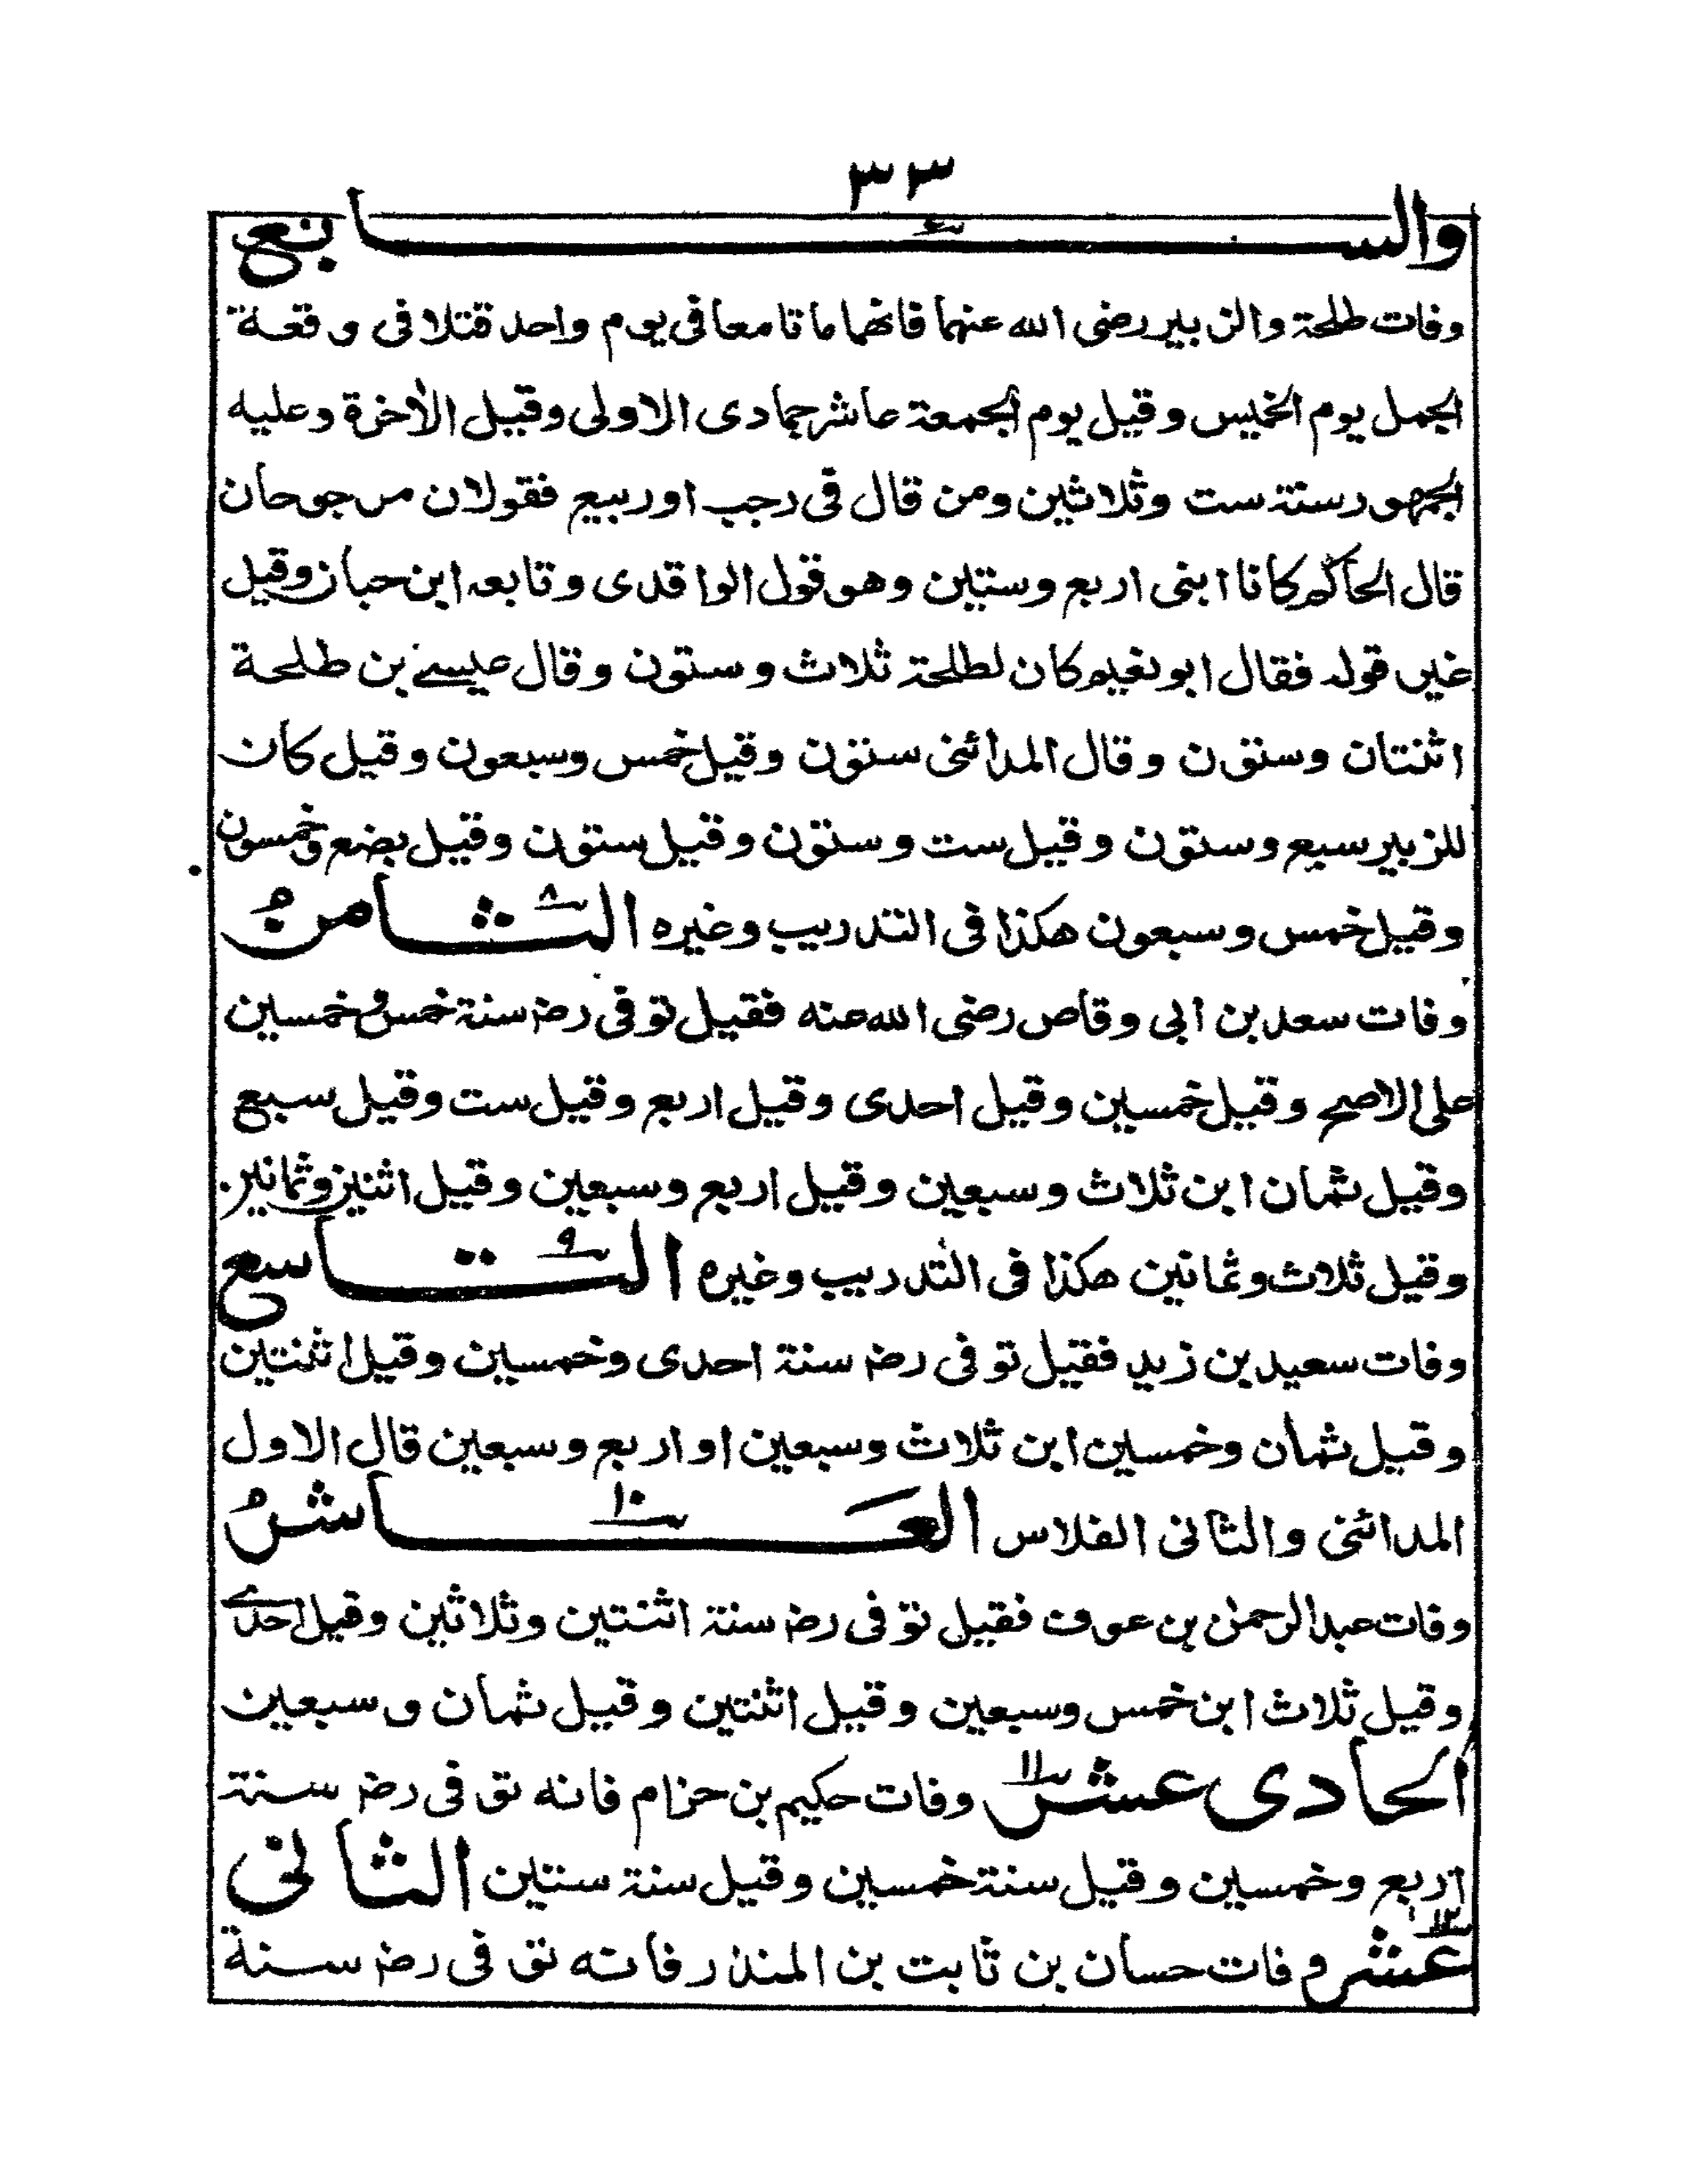 ٣٣
والسابع
وفات طلحة والزبير رضى الله عنهما فانهما ماتا معا فى يوم واحد قتلا فى وقعة
الجمل يوم الخميس وقيل يوم الجمعة عاشر جمادى الاولى وقيل الأخرة وعليه
الجمهور سنة ست وثلاثين ومن قال فى رجب او ربيع فقولان مرجوحان
قال الحاكم كانا ابنى اربع وستين وهو قول الواقدى وتابعه ابن حبان وقيل
غير قوله فقال ابو نعيم كان لطلحة ثلاث وستون وقال عيسے بن طلحة
اثنتان وستون وقال المدائنى ستون وقيل خمس وسبعون وقيل كان
للزبير سبع وستون وقيل ست وستون وقيل ستون وقيل بضع وخمسون
وقيل خمس وسبعون هكذا فى التدريب وغيره الثامن ٨
وفات سعد بن ابى وقاص رضى الله عنه فقيل توفى رضہ سنة خمس وخمسين
على الاصح وقيل خمسين وقيل احدى وقيل اربع وقيل ست وقيل سبع
وقيل ثمان ابن ثلاث وسبعين وقيل اربع وسبعين وقيل اثنين وثمانين
وقيل ثلاث وثمانين هكذا فى التدريب وغيره التاسع ٩
وفات سعيد بن زيد فقيل توفى رضہ سنة احدى وخمسين وقيل اثنتين
وقيل ثمان وخمسين ابن ثلاث وسبعين او اربع وسبعين قال الاول
المدائنى والثانى الفلاس العاشر ١٠
وفات عبد الرحمن بن عوف فقيل توفى رضہ سنة اثنتين وثلاثين وقيل احدے
وقيل ثلاث ابن خمس وسبعين وقيل اثنتين وقيل ثمان وسبعين
الحادى عشر ١١ وفات حكيم بن حزام فانه توفى رضہ سنة
اربع وخمسين وقيل سنة خمسين وقيل سنة ستين الثانى
عشر ١٢ وفات حسان بن ثابت بن المنذر فانه توفى رضہ سنة